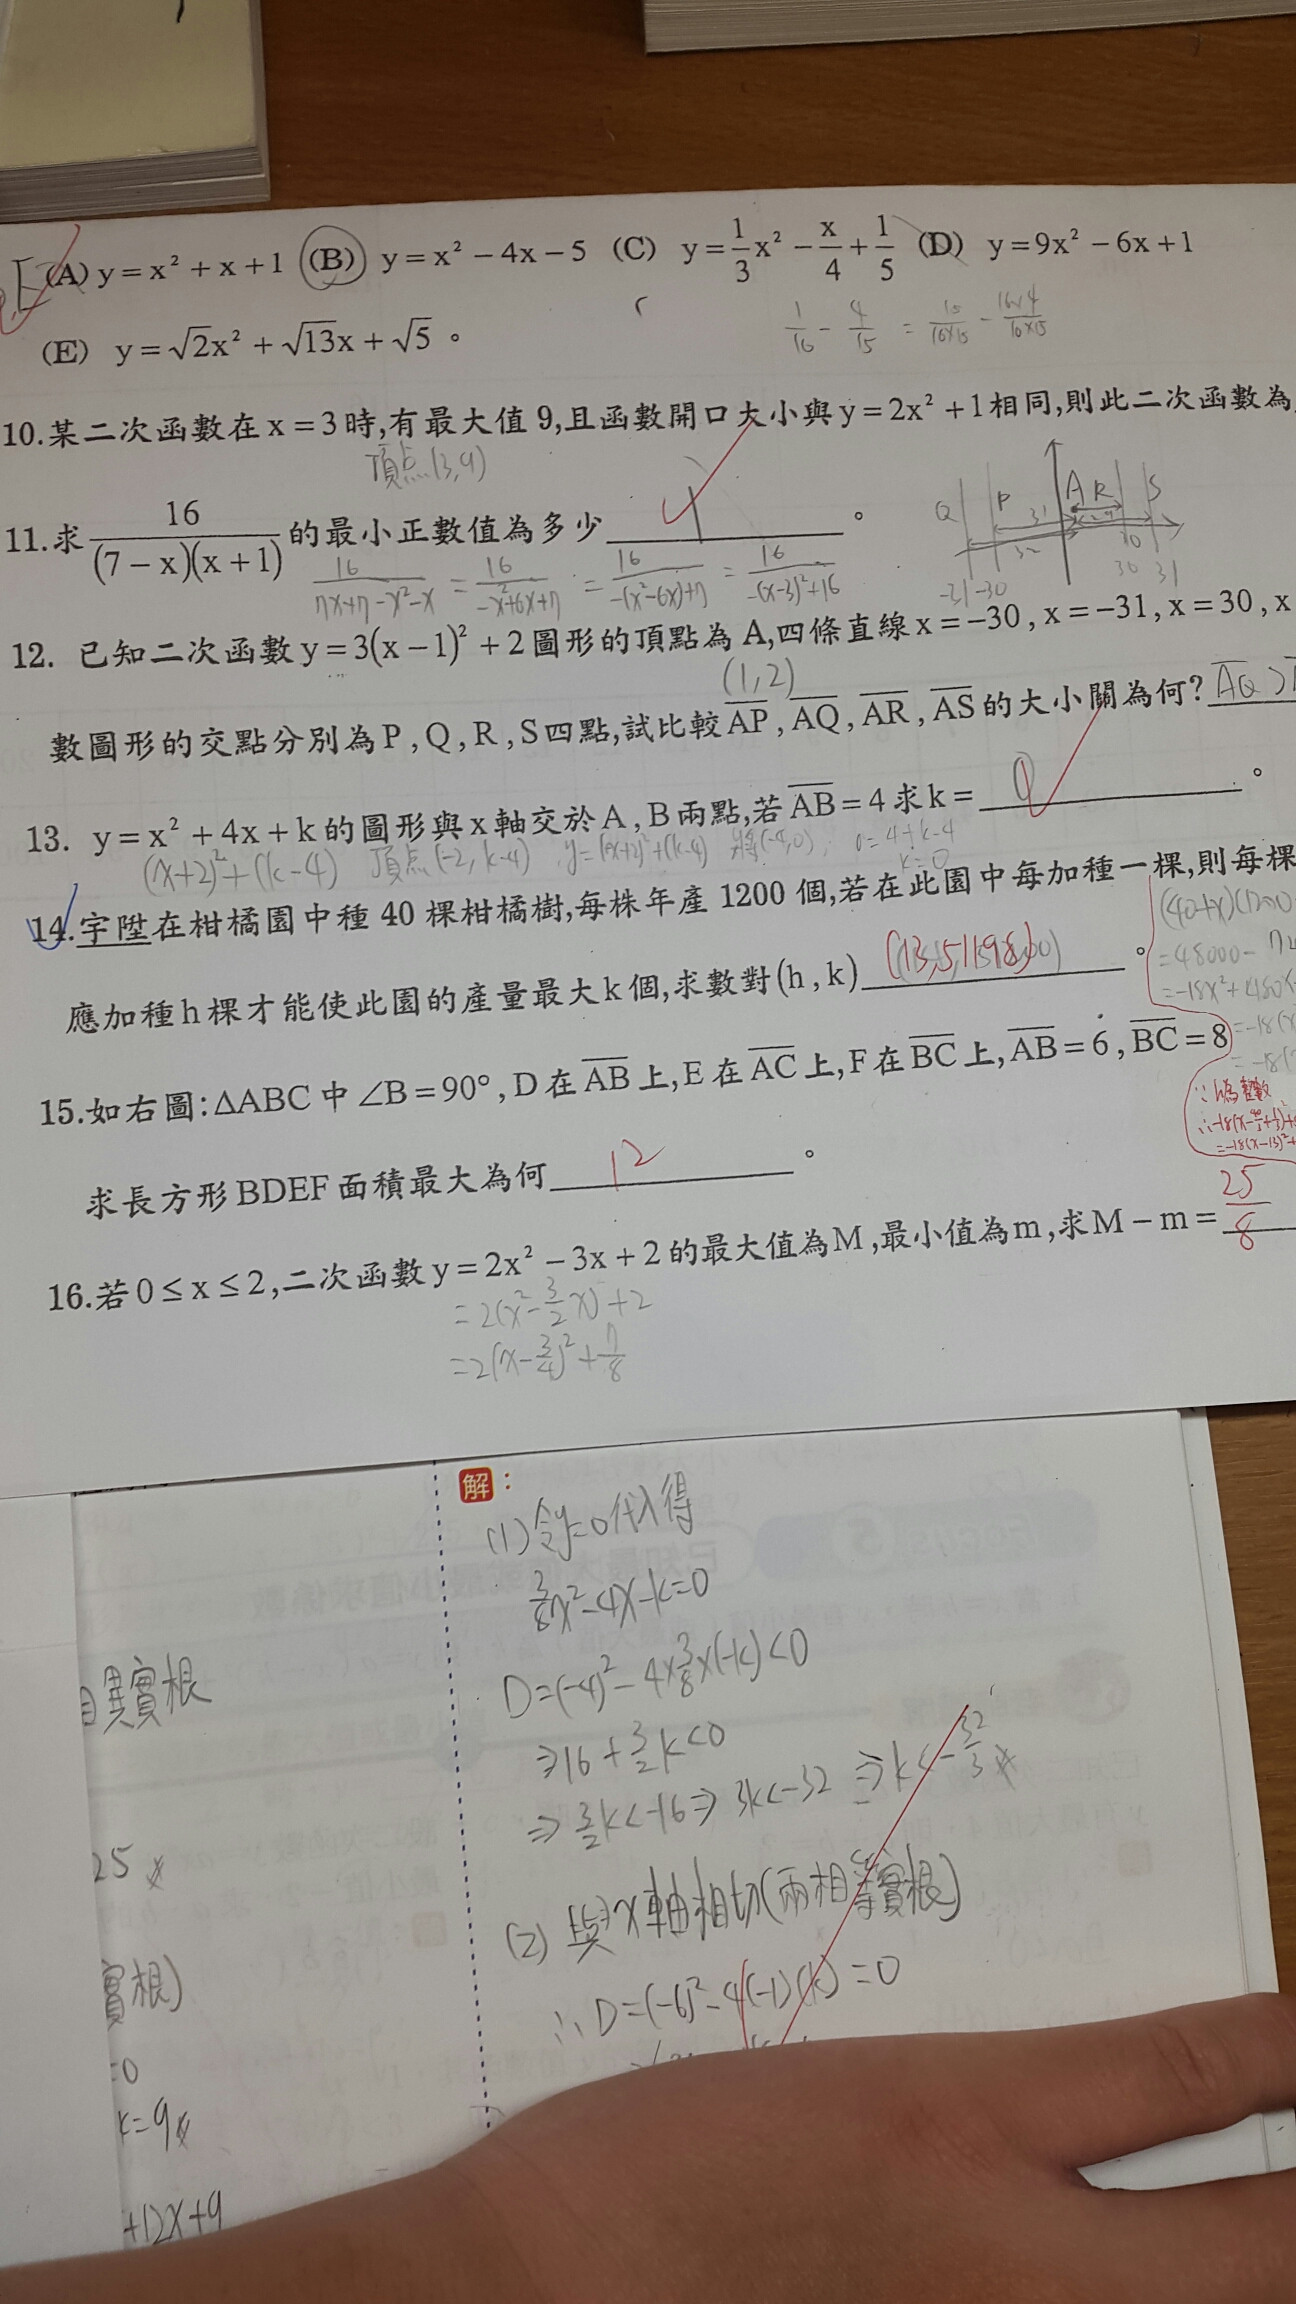 (A) y = x² + x + 1 (B) y = x² − 4x − 5 (C) y = 1/3 x² − x/4 + 1/5 (D) y = 9x² − 6x + 1
(E) y = √2x² + √13x + √5 。
1/16 − 4/15 = 15/16×15 − 16×4/16×15
10.某二次函數在 x = 3 時,有最大值 9,且函數開口大小與 y = 2x² + 1 相同,則此二次函數為
頂点(3,9)
11.求 16/(7 − x)(x + 1) 的最小正數值為多少 1 。
16/7x+7−x²−x = 16/−x²+6x+7 = 16/−(x²−6x)+7 = 16/−(x−3)²+16
Q P A R S
31
32
-31 -30 30 31
12. 已知二次函數 y = 3(x − 1)² + 2 圖形的頂點為 A,四條直線 x = −30 , x = −31 , x = 30 , x
(1,2)
數圖形的交點分別為 P , Q , R , S 四點,試比較 AP , AQ , AR , AS 的大小關為何? AQ >
13. y = x² + 4x + k 的圖形與 x 軸交於 A , B 兩點,若 AB = 4 求 k = 0 。
(x+2)²+(k-4) 頂点(-2, k-4) y=(x+2)²+(k-4) 將(-4,0) 0=4+k-4
k=0
14.宇陞在柑橘園中種 40 棵柑橘樹,每株年產 1200 個,若在此園中每加種一棵,則每棵
(40+x)(1200
=48000−
=-18x²+480x
應加種 h 棵才能使此園的產量最大 k 個,求數對 (h , k) (13,51198) 。
=-18(x
=-18(
15.如右圖:ΔABC 中 ∠B = 90° , D 在 AB 上,E 在 AC 上,F 在 BC 上, AB = 6 , BC = 8
∵h為整數
=-18(x-13)²+
求長方形 BDEF 面積最大為何 12 。
16.若 0 ≤ x ≤ 2 ,二次函數 y = 2x² − 3x + 2 的最大值為 M ,最小值為 m ,求 M − m = 25/8
=2(x²-3/2x)+2
=2(x-3/4)²+7/8
解:
(1)令y=0代入得
3/8x²-4x-k=0
D=(-4)²-4×3/8×(-k)<0
⇒16+3/2k<0
⇒3/2k<-16⇒3k<-32 ⇒k<-32/3
(2) 與x軸相切(兩相等實根)
∴D=(-6)²-4(-1)(k)=0
異實根
25
實根)
=0
k=9
+12x+9